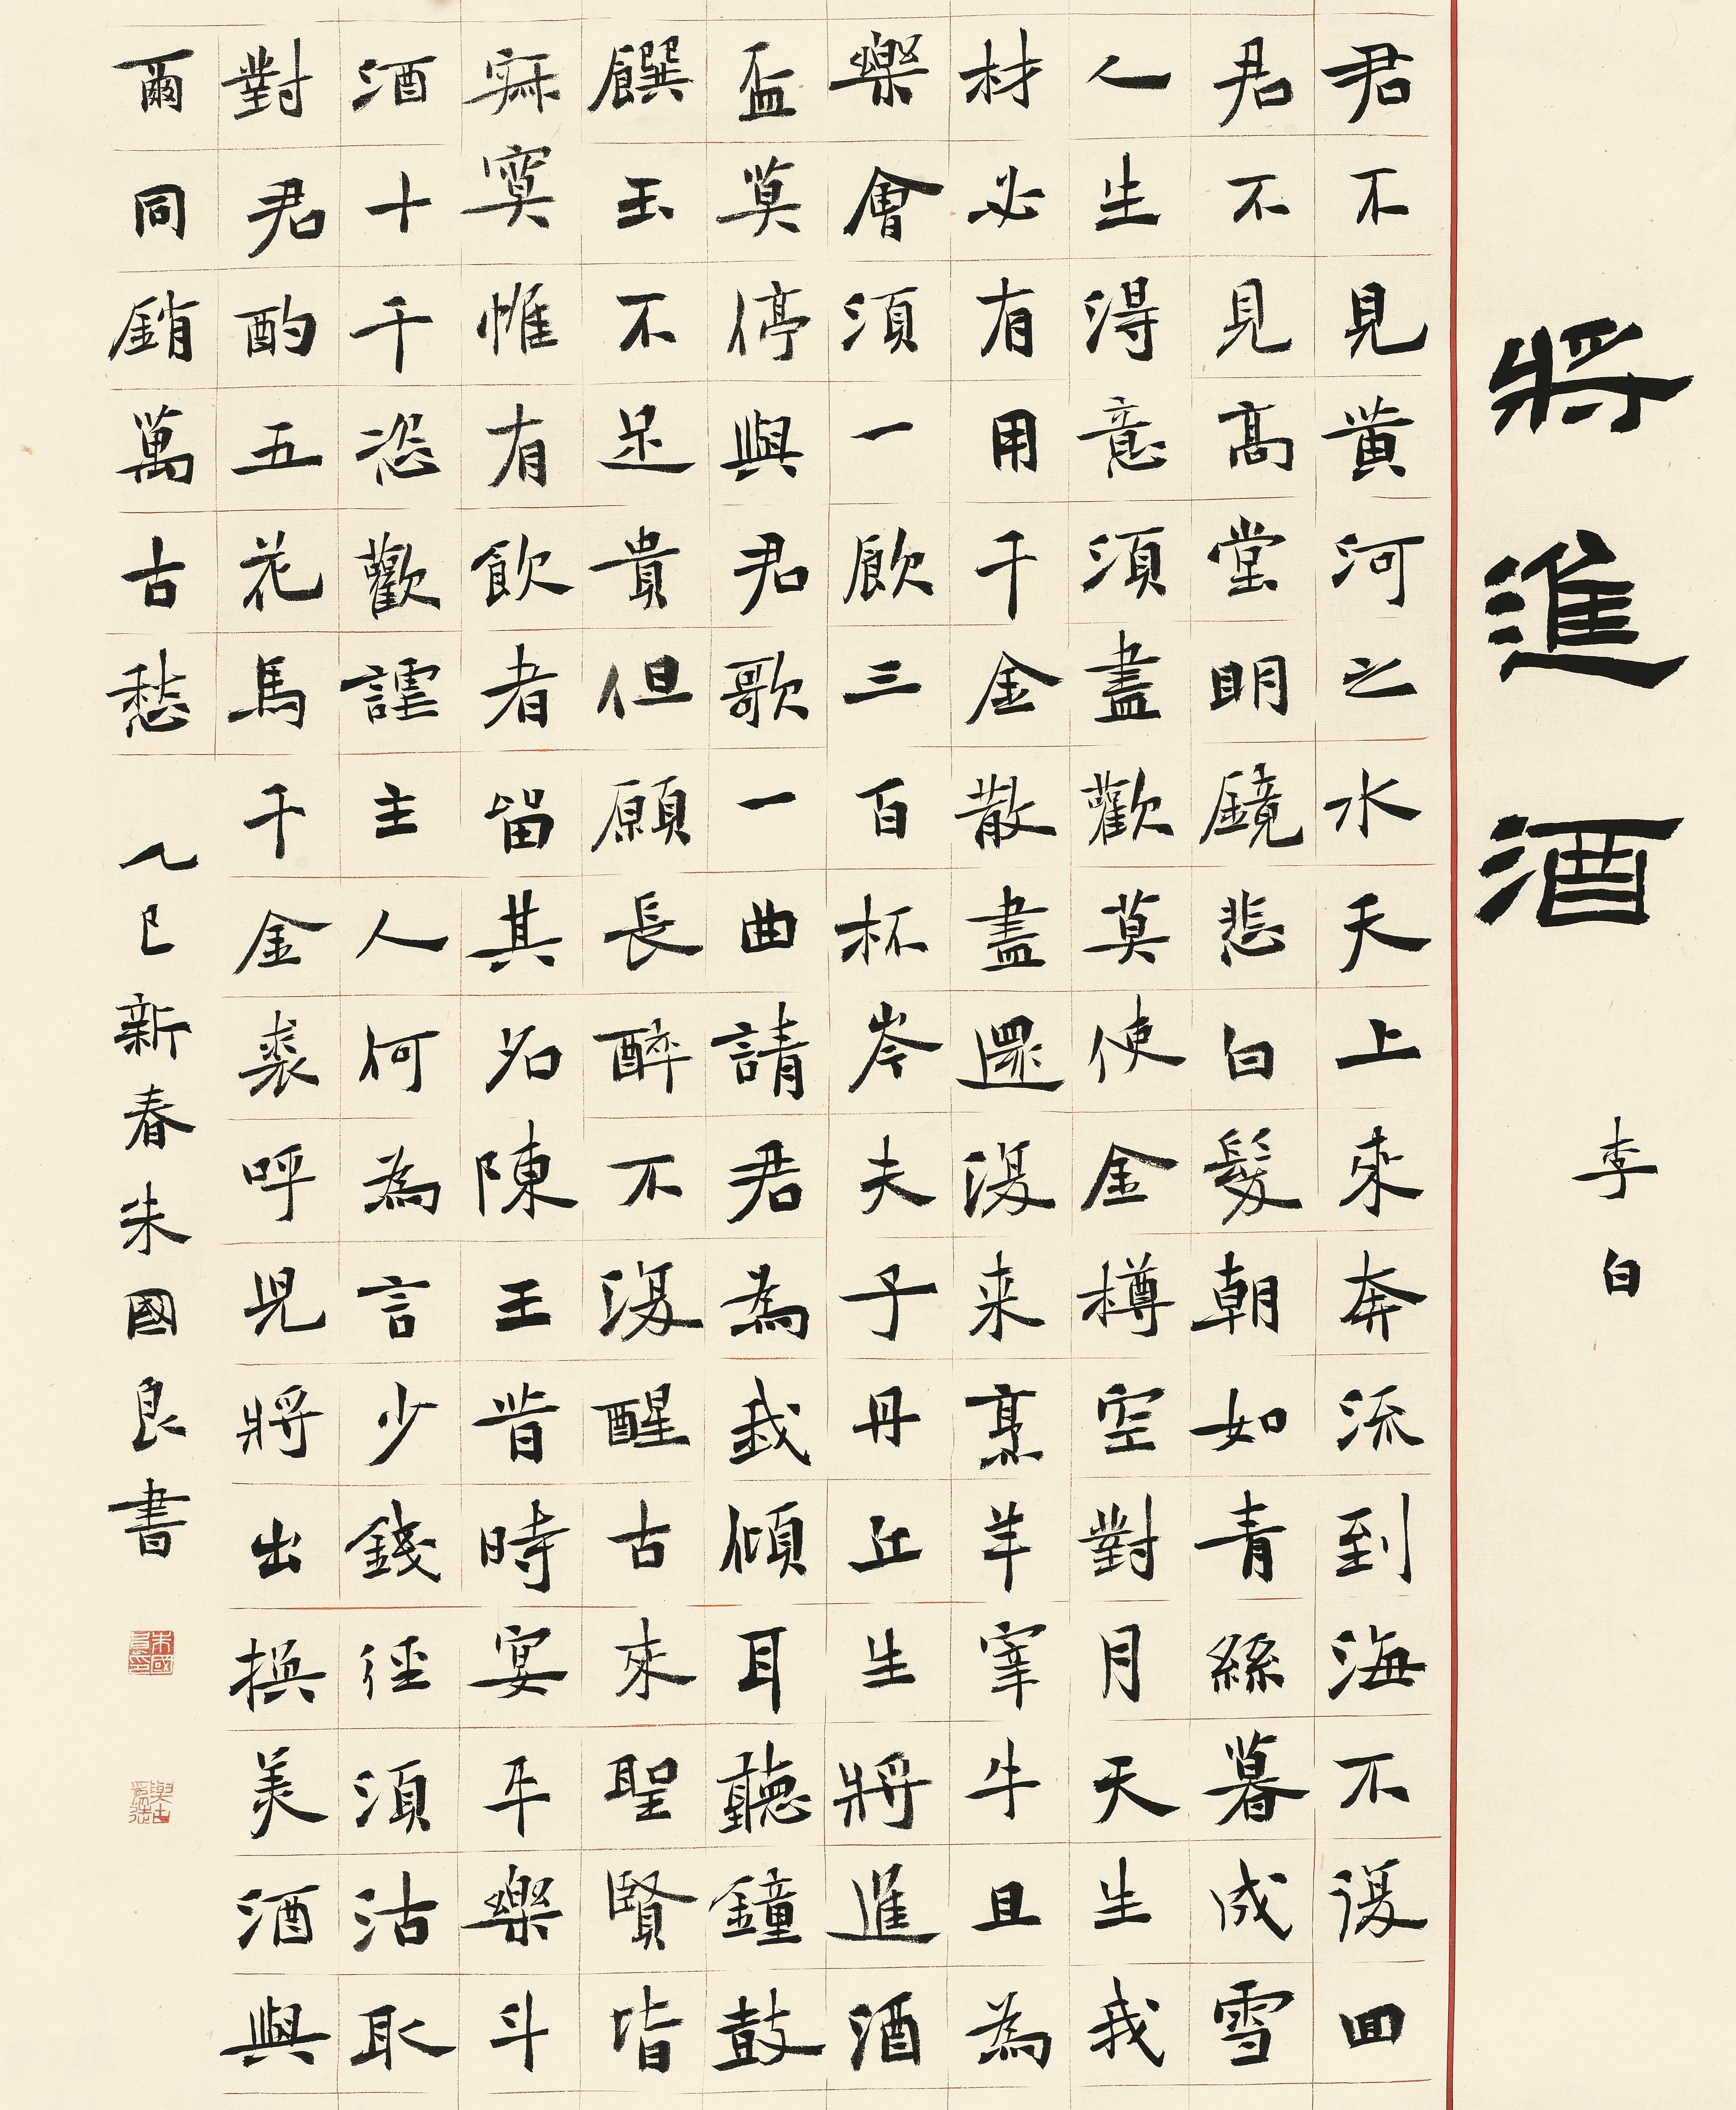 將進酒
李白
君不見黃河之水天上來奔流到海不復回
君不見高堂明鏡悲白髮朝如青絲暮成雪
人生得意須盡歡莫使金樽空對月天生我
材必有用千金散盡還復来烹羊宰牛且為
樂會須一飲三百杯岑夫子丹丘生將進酒
盃莫停與君歌一曲請君為我傾耳聽鐘鼓
饌玉不足貴但願長醉不復醒古來聖賢皆
寂寞惟有飲者留其名陳王昔時宴平樂斗
酒十千恣歡謔主人何為言少錢徑須沽取
對君酌五花馬千金裘呼兒將出換美酒與
爾同銷萬古愁
乙巳新春朱國良書
朱國良印